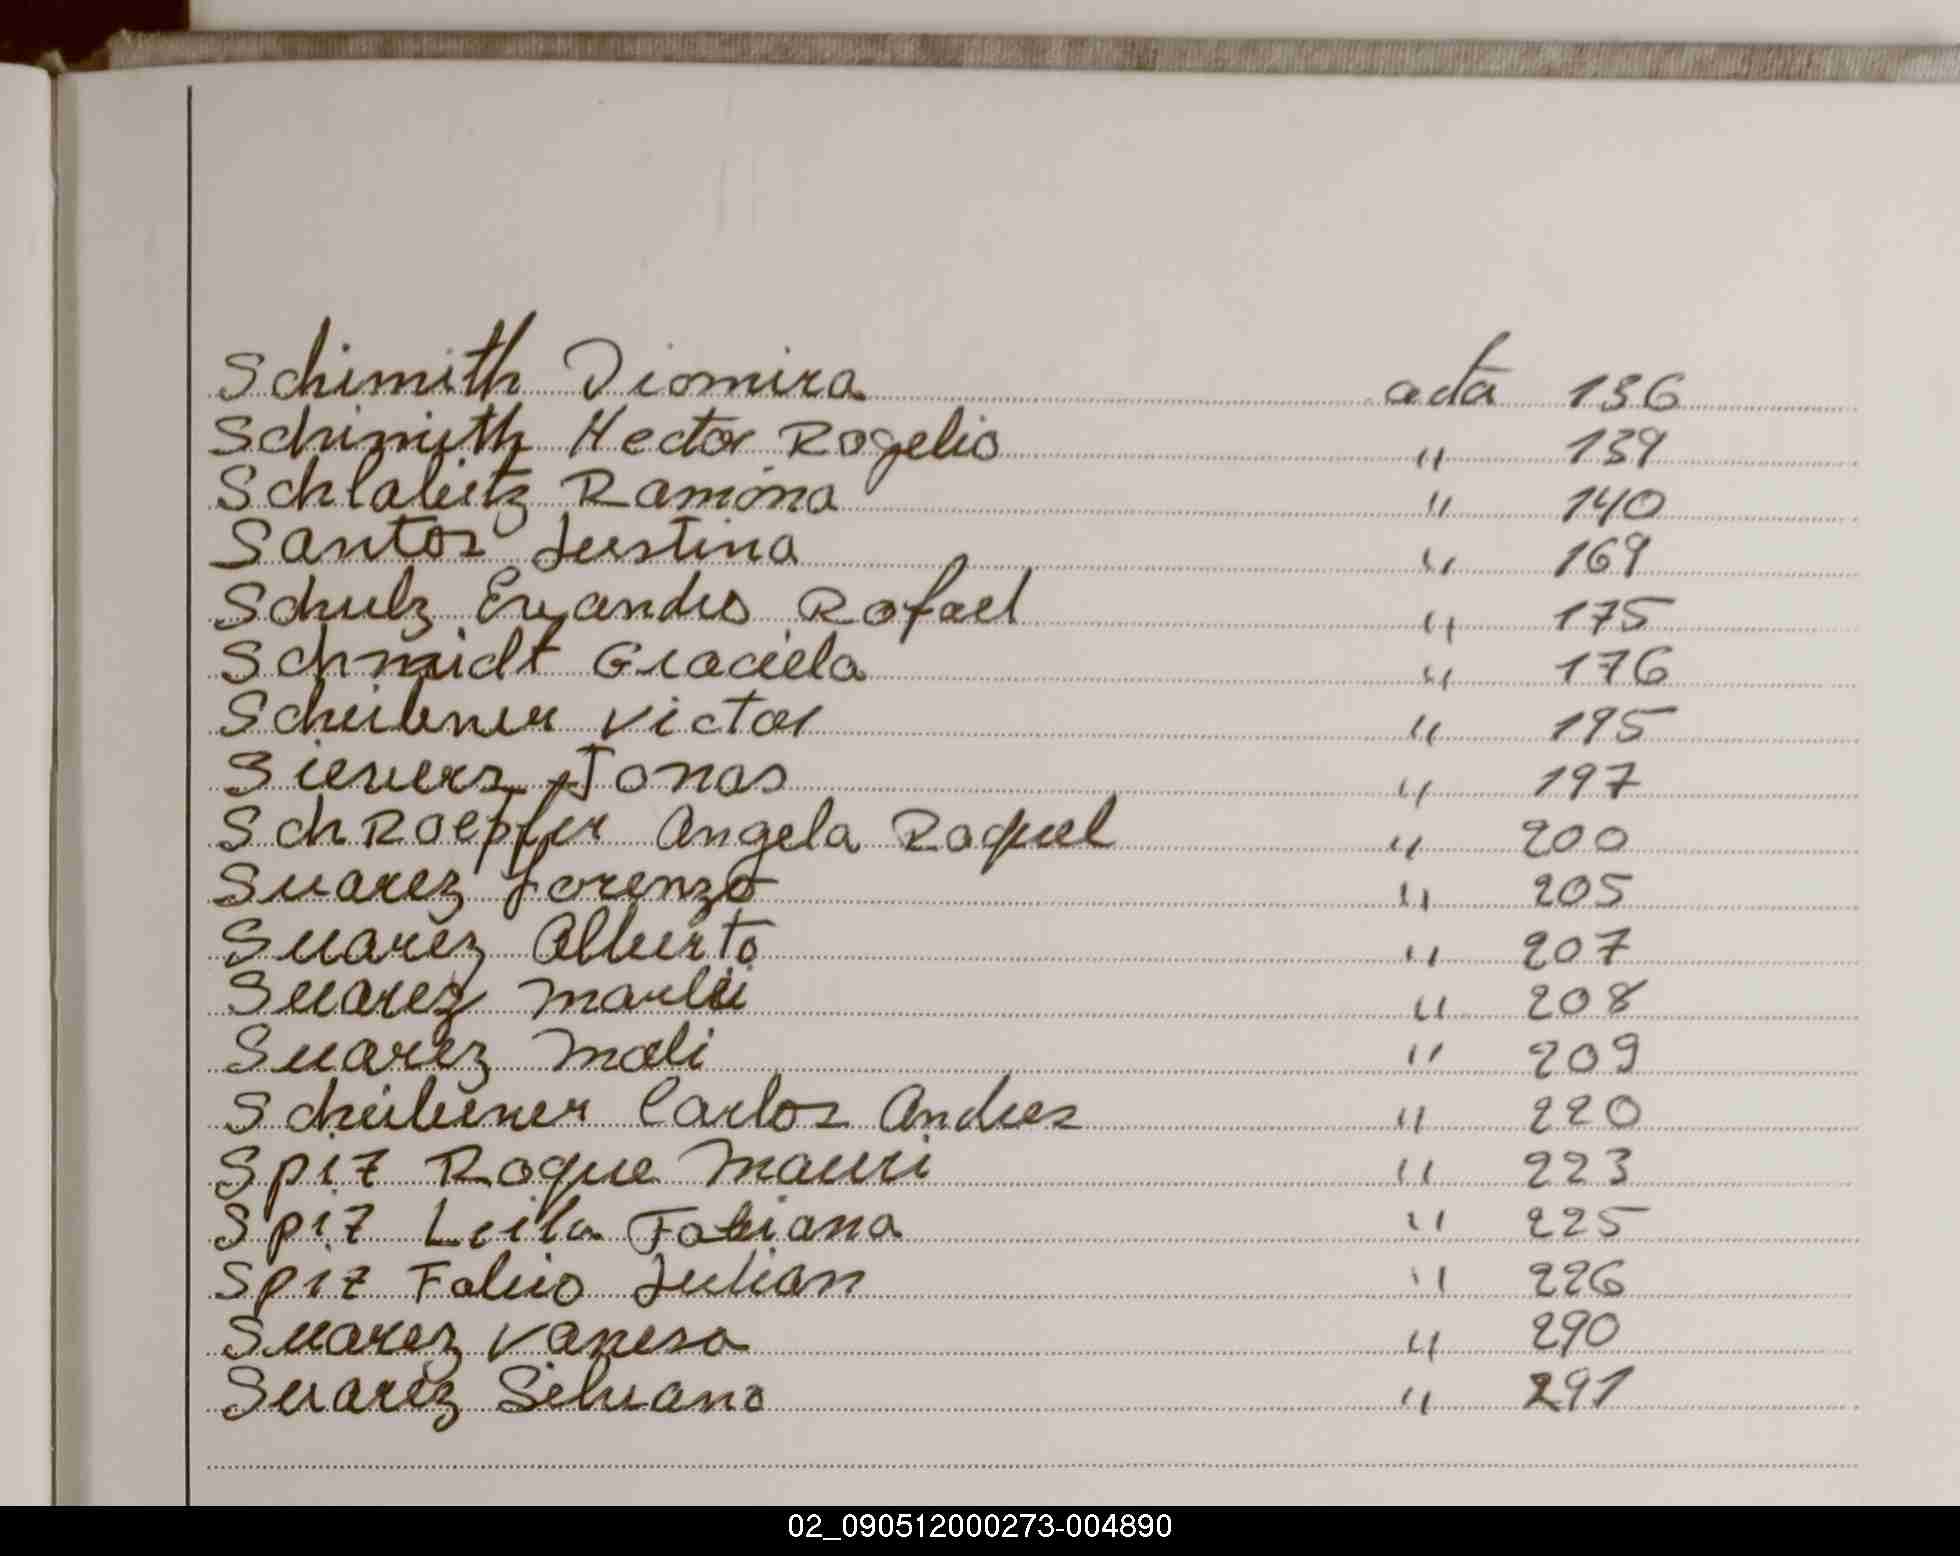 Schimith Diomira acta 136
Schimith Hector Rogelio " 139
Schlabitz Ramona " 140
Santos Justina " 169
Schulz Eryandro Rafael " 175
Schmidt Graciela " 176
Scheibner Victor " 195
Sievers Jonas " 197
SchRoepfer Angela Raquel " 200
Suarez Lorenzo " 205
Suarez Alberto " 207
Suarez Marlei " 208
Suarez Mali " 209
Scheibener Carlos Andres " 220
Spiz Roque Mauri " 223
Spiz Leila Fabiana " 225
Spiz Fabio Julian " 226
Suarez Vanesa " 290
Suarez Silvano " 291
02_090512000273-004890